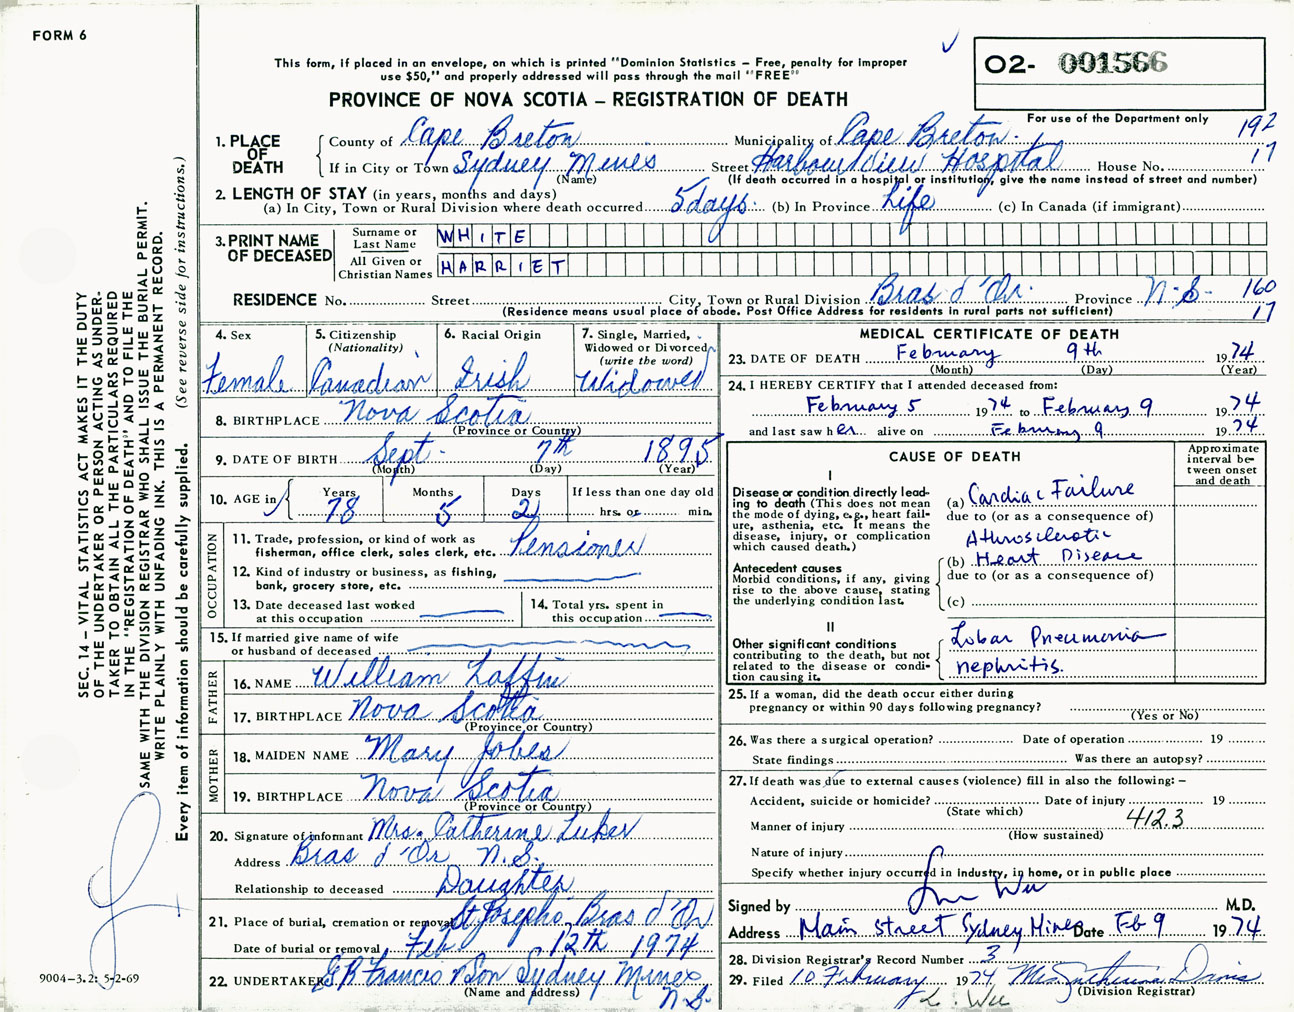 FORM 6
This form, if placed in an envelope, on which is printed "Dominion Statistics – Free, penalty for improper
use $50," and properly addressed will pass through the mail "FREE"
O2- 001566
PROVINCE OF NOVA SCOTIA – REGISTRATION OF DEATH
For use of the Department only
192
17
1. PLACE OF DEATH
County of Cape Breton Municipality of Cape Breton
If in City or Town Sydney Mines Street Harbour View Hospital House No.
(Name) (If death occurred in a hospital or institution, give the name instead of street and number)
2. LENGTH OF STAY (in years, months and days)
(a) In City, Town or Rural Division where death occurred 5 days (b) In Province Life (c) In Canada (if immigrant)
3. PRINT NAME OF DECEASED
Surname or Last Name WHITE
All Given or Christian Names HARRIET
RESIDENCE No. Street City, Town or Rural Division Bras d'Or Province N.S. 160
(Residence means usual place of abode. Post Office Address for residents in rural parts not sufficient) 17
4. Sex Female
5. Citizenship (Nationality) Canadian
6. Racial Origin Irish
7. Single, Married, Widowed or Divorced (write the word) Widowed
8. BIRTHPLACE Nova Scotia
(Province or Country)
9. DATE OF BIRTH Sept. 7th 1895
(Month) (Day) (Year)
10. AGE in Years 78 Months 5 Days 2 If less than one day old
hrs. or min.
OCCUPATION
11. Trade, profession, or kind of work as
fisherman, office clerk, sales clerk, etc. Pensioner
12. Kind of industry or business, as fishing,
bank, grocery store, etc.
13. Date deceased last worked
at this occupation
14. Total yrs. spent in
this occupation
15. If married give name of wife
or husband of deceased
FATHER
16. NAME William Laffin
17. BIRTHPLACE Nova Scotia
(Province or Country)
MOTHER
18. MAIDEN NAME Mary Jobes
19. BIRTHPLACE Nova Scotia
(Province or Country)
20. Signature of informant Mrs. Catherine Luker
Address Bras d'Or N.S.
Relationship to deceased Daughter
21. Place of burial, cremation or removal St. Josephs, Bras d'Or
Date of burial or removal Feb. 12th 1974
22. UNDERTAKER Francis & Son Sydney Mines
(Name and address) N.S.
MEDICAL CERTIFICATE OF DEATH
23. DATE OF DEATH February 9th 1974
(Month) (Day) (Year)
24. I HEREBY CERTIFY that I attended deceased from:
February 5 1974 to February 9 1974
and last saw her alive on February 9 1974
CAUSE OF DEATH
Approximate interval between onset and death
I
Disease or condition directly lead-
ing to death (This does not mean
the mode of dying, e.g., heart fail-
ure, asthenia, etc. It means the
disease, injury, or complication
which caused death.)
(a) Cardiac Failure
due to (or as a consequence of)
Athrosclerotic
(b) Heart Disease
due to (or as a consequence of)
(c)
Antecedent causes
Morbid conditions, if any, giving
rise to the above cause, stating
the underlying condition last.
II
Other significant conditions
contributing to the death, but not
related to the disease or condi-
tion causing it.
Lobar Pneumonia
nephritis.
25. If a woman, did the death occur either during
pregnancy or within 90 days following pregnancy?
(Yes or No)
26. Was there a surgical operation? Date of operation 19
State findings Was there an autopsy?
27. If death was due to external causes (violence) fill in also the following: –
Accident, suicide or homicide? Date of injury 19
(State which)
Manner of injury 412.3
(How sustained)
Nature of injury
Specify whether injury occurred in industry, in home, or in public place
Signed by Wu M.D.
Address Main Street Sydney Mines Date Feb 9 1974
28. Division Registrar's Record Number 3
29. Filed 10 February 1974 Mrs. Davis
(Division Registrar)
L. Wu
SEC. 14 – VITAL STATISTICS ACT MAKES IT THE DUTY
OF THE UNDERTAKER OR PERSON ACTING AS UNDER-
TAKER TO OBTAIN ALL THE PARTICULARS REQUIRED
IN THE "REGISTRATION OF DEATH" AND TO FILE THE
SAME WITH THE DIVISION REGISTRAR WHO SHALL ISSUE THE BURIAL PERMIT.
WRITE PLAINLY WITH UNFADING INK. THIS IS A PERMANENT RECORD.
Every item of information should be carefully supplied. (See reverse side for instructions.)
9004-3.2: 5-2-69